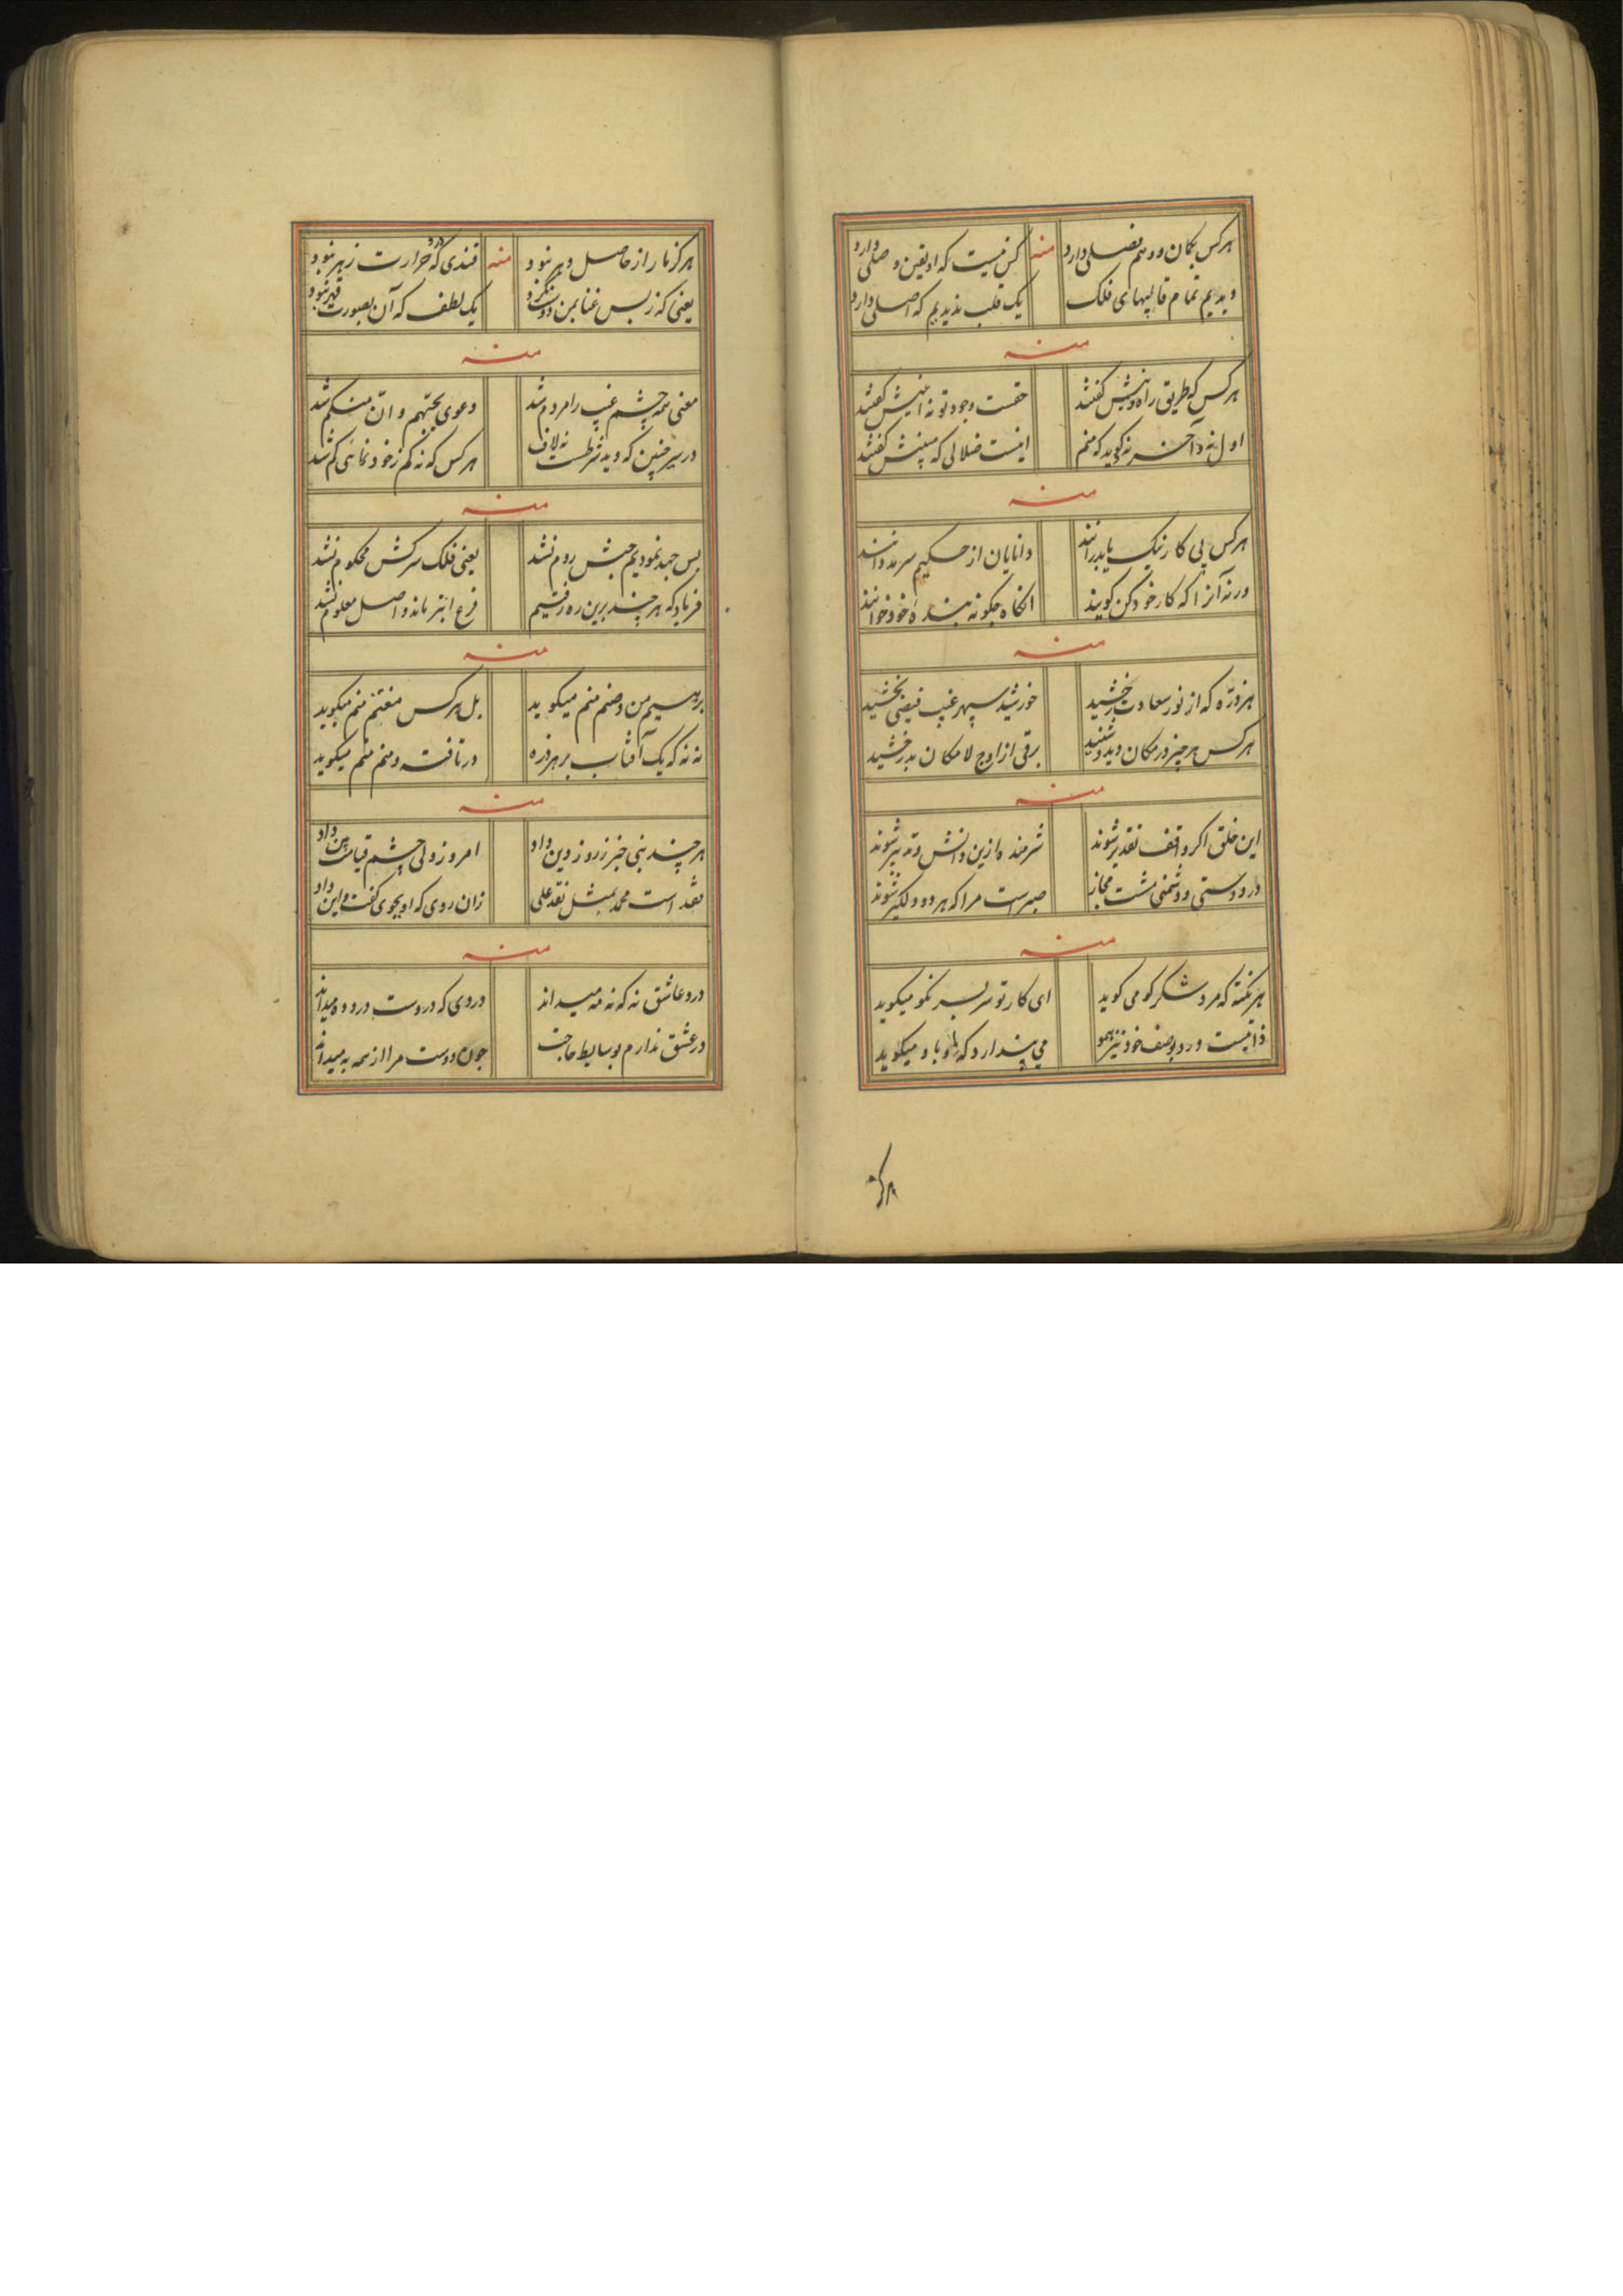 هرکس بگمان و وهم فصلی دارد منه کس نیست که او یقین و صلی دارد
دیدیم تمام قالبهای فلک یک قلب ندیدیم که اصلی دارد
منه
هرکس که طریق راه دینش گفتند حقست وجود تو نه اینش گفتند
اول نه و آخر نه گوید که منم اینست ضلالی که مبینش گفتند
منه
هرکس پی کار نیک یا بد رانند دانایان از حکیم سرمد دانند
ورنه آنرا که کار خود کن گویند آنگاه چگونه بنده خود خوانند
منه
هر ذره که از نور سعادت رخشید خورشید سپهر غیب فیضی بخشید
هرکس هر چیز در مکان دید و شنید برقی از اوج لامکان بدرخشید
منه
این خلق اگر واقف تقدیر شوند شرمنده ازین دانش و تدبیر شوند
در دوستی و دشمنی مشت مجاز صبرست مرا که هر دو دلگیر شوند
منه
هر نکته که مرد شکر گو می گوید ای کار تو سر بسر نکو میگوید
ذاتیست و رد بوصف خود نیز همو می پندارد که او میگوید
هرگز ما را ز حاصل دهر نبود منه قندی که درو حرارت زهر نبود
یعنی که ز بس غنا بمن دوست نکرد یک لطف که آن بصورت قهر نبود
منه
معنی همه چشم غیب را مردم شد دعوی بجهنم و ان منکم شد
در سیر چنین که دید شرطست نه لاف هرکس که نه کم ز خودنمائی گم شد
منه
بس جهد نمودیم حبش روم نشد یعنی فلک سرکش محکوم نشد
فریاد که هر چند برین ره رفتیم فرع ابتر ماند و اصل معلوم نشد
منه
برهسیم من و صنم منم میگوید بل هرکس مغتنم منم میگوید
نه نه که یک آفتاب بر هر ذره در تافته و منم منم میگوید
منه
هر چند نبی خبر ز روز دین داد امروز ولی چشم قیامت بین داد
نقد است محمد بمثل نقد علی زان روی که او بجوی گفت و این داد
منه
درد عاشق نه که نه مه میداند دردی که در دوست درد ده میداند
در عشق ندارم بوسایط حاجت چون دوست مرا از همه به میداند